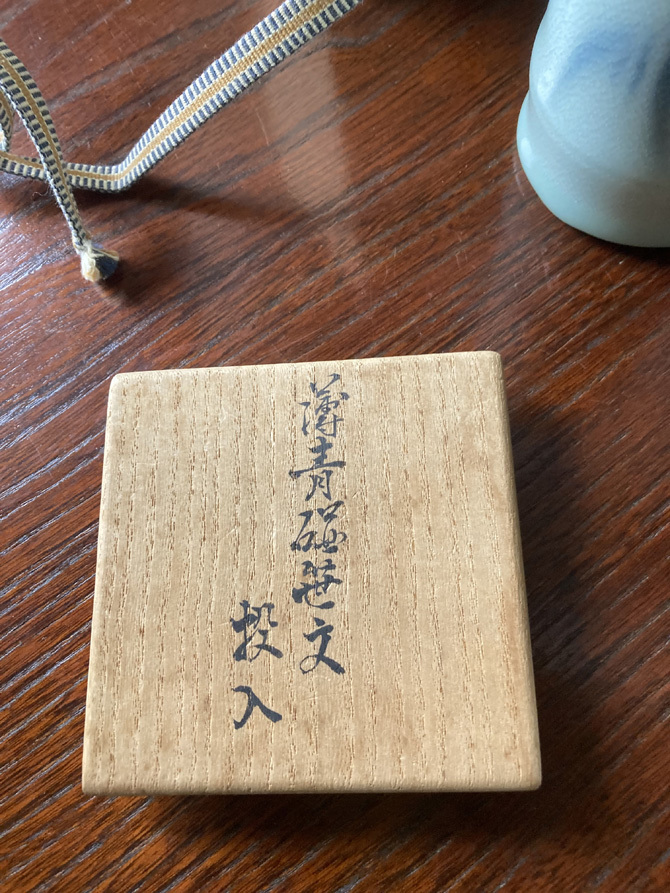 薄青磁笹文
投入